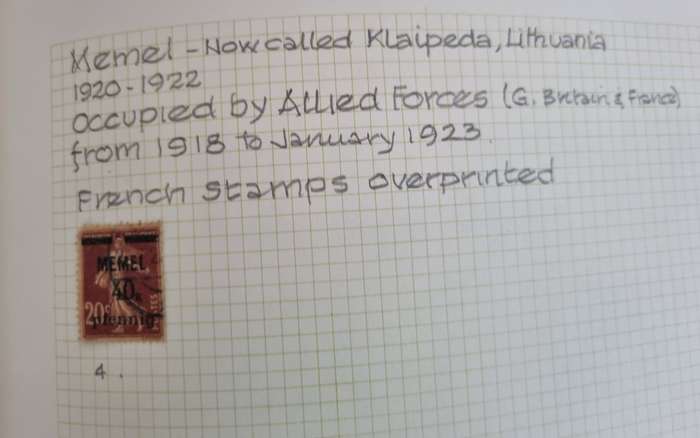 Memel - Now called Klaipeda, Lithuania
1920-1922
occupied by Allied Forces (G. Britain & France)
from 1918 to January 1923.
French stamps overprinted
MEMEL
40
20c
pfennig
4.